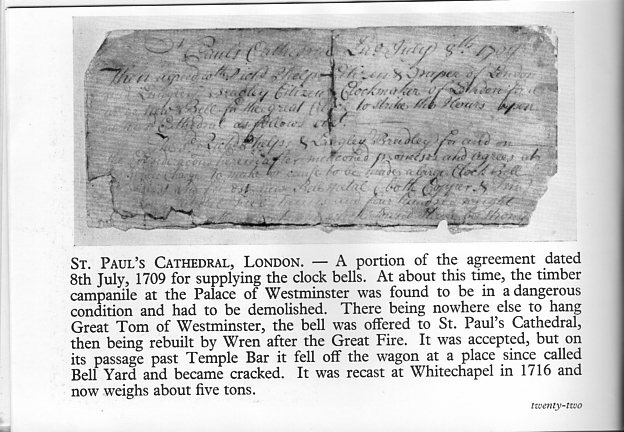 St Pauls Cathedral July 8th 1709
Then agreed with Richd Phelps Citizen & Draper of London
Langley Bradley Citizen & Clockmaker of London for a
Bell for the great Clock to strike the Hours upon
Cathedral as follows
Richd Phelps & Langley Bradley for and on
and agrees at
to make or cause to be made a large Clock Bell
Copper &
and four hundred weight
ST. PAUL'S CATHEDRAL, LONDON. — A portion of the agreement dated
8th July, 1709 for supplying the clock bells. At about this time, the timber
campanile at the Palace of Westminster was found to be in a dangerous
condition and had to be demolished. There being nowhere else to hang
Great Tom of Westminster, the bell was offered to St. Paul's Cathedral,
then being rebuilt by Wren after the Great Fire. It was accepted, but on
its passage past Temple Bar it fell off the wagon at a place since called
Bell Yard and became cracked. It was recast at Whitechapel in 1716 and
now weighs about five tons.
twenty-two